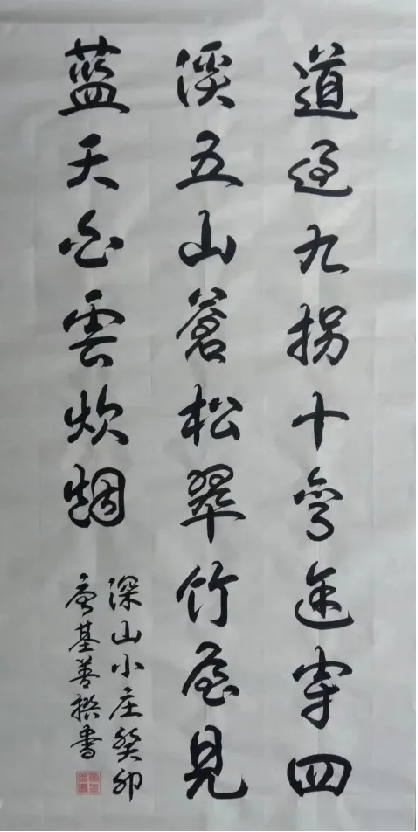 道過九拐十弯途穿四
溪五山蒼松翠竹屋見
藍天白雲炊烟
深山小庄癸卯
基善撰書